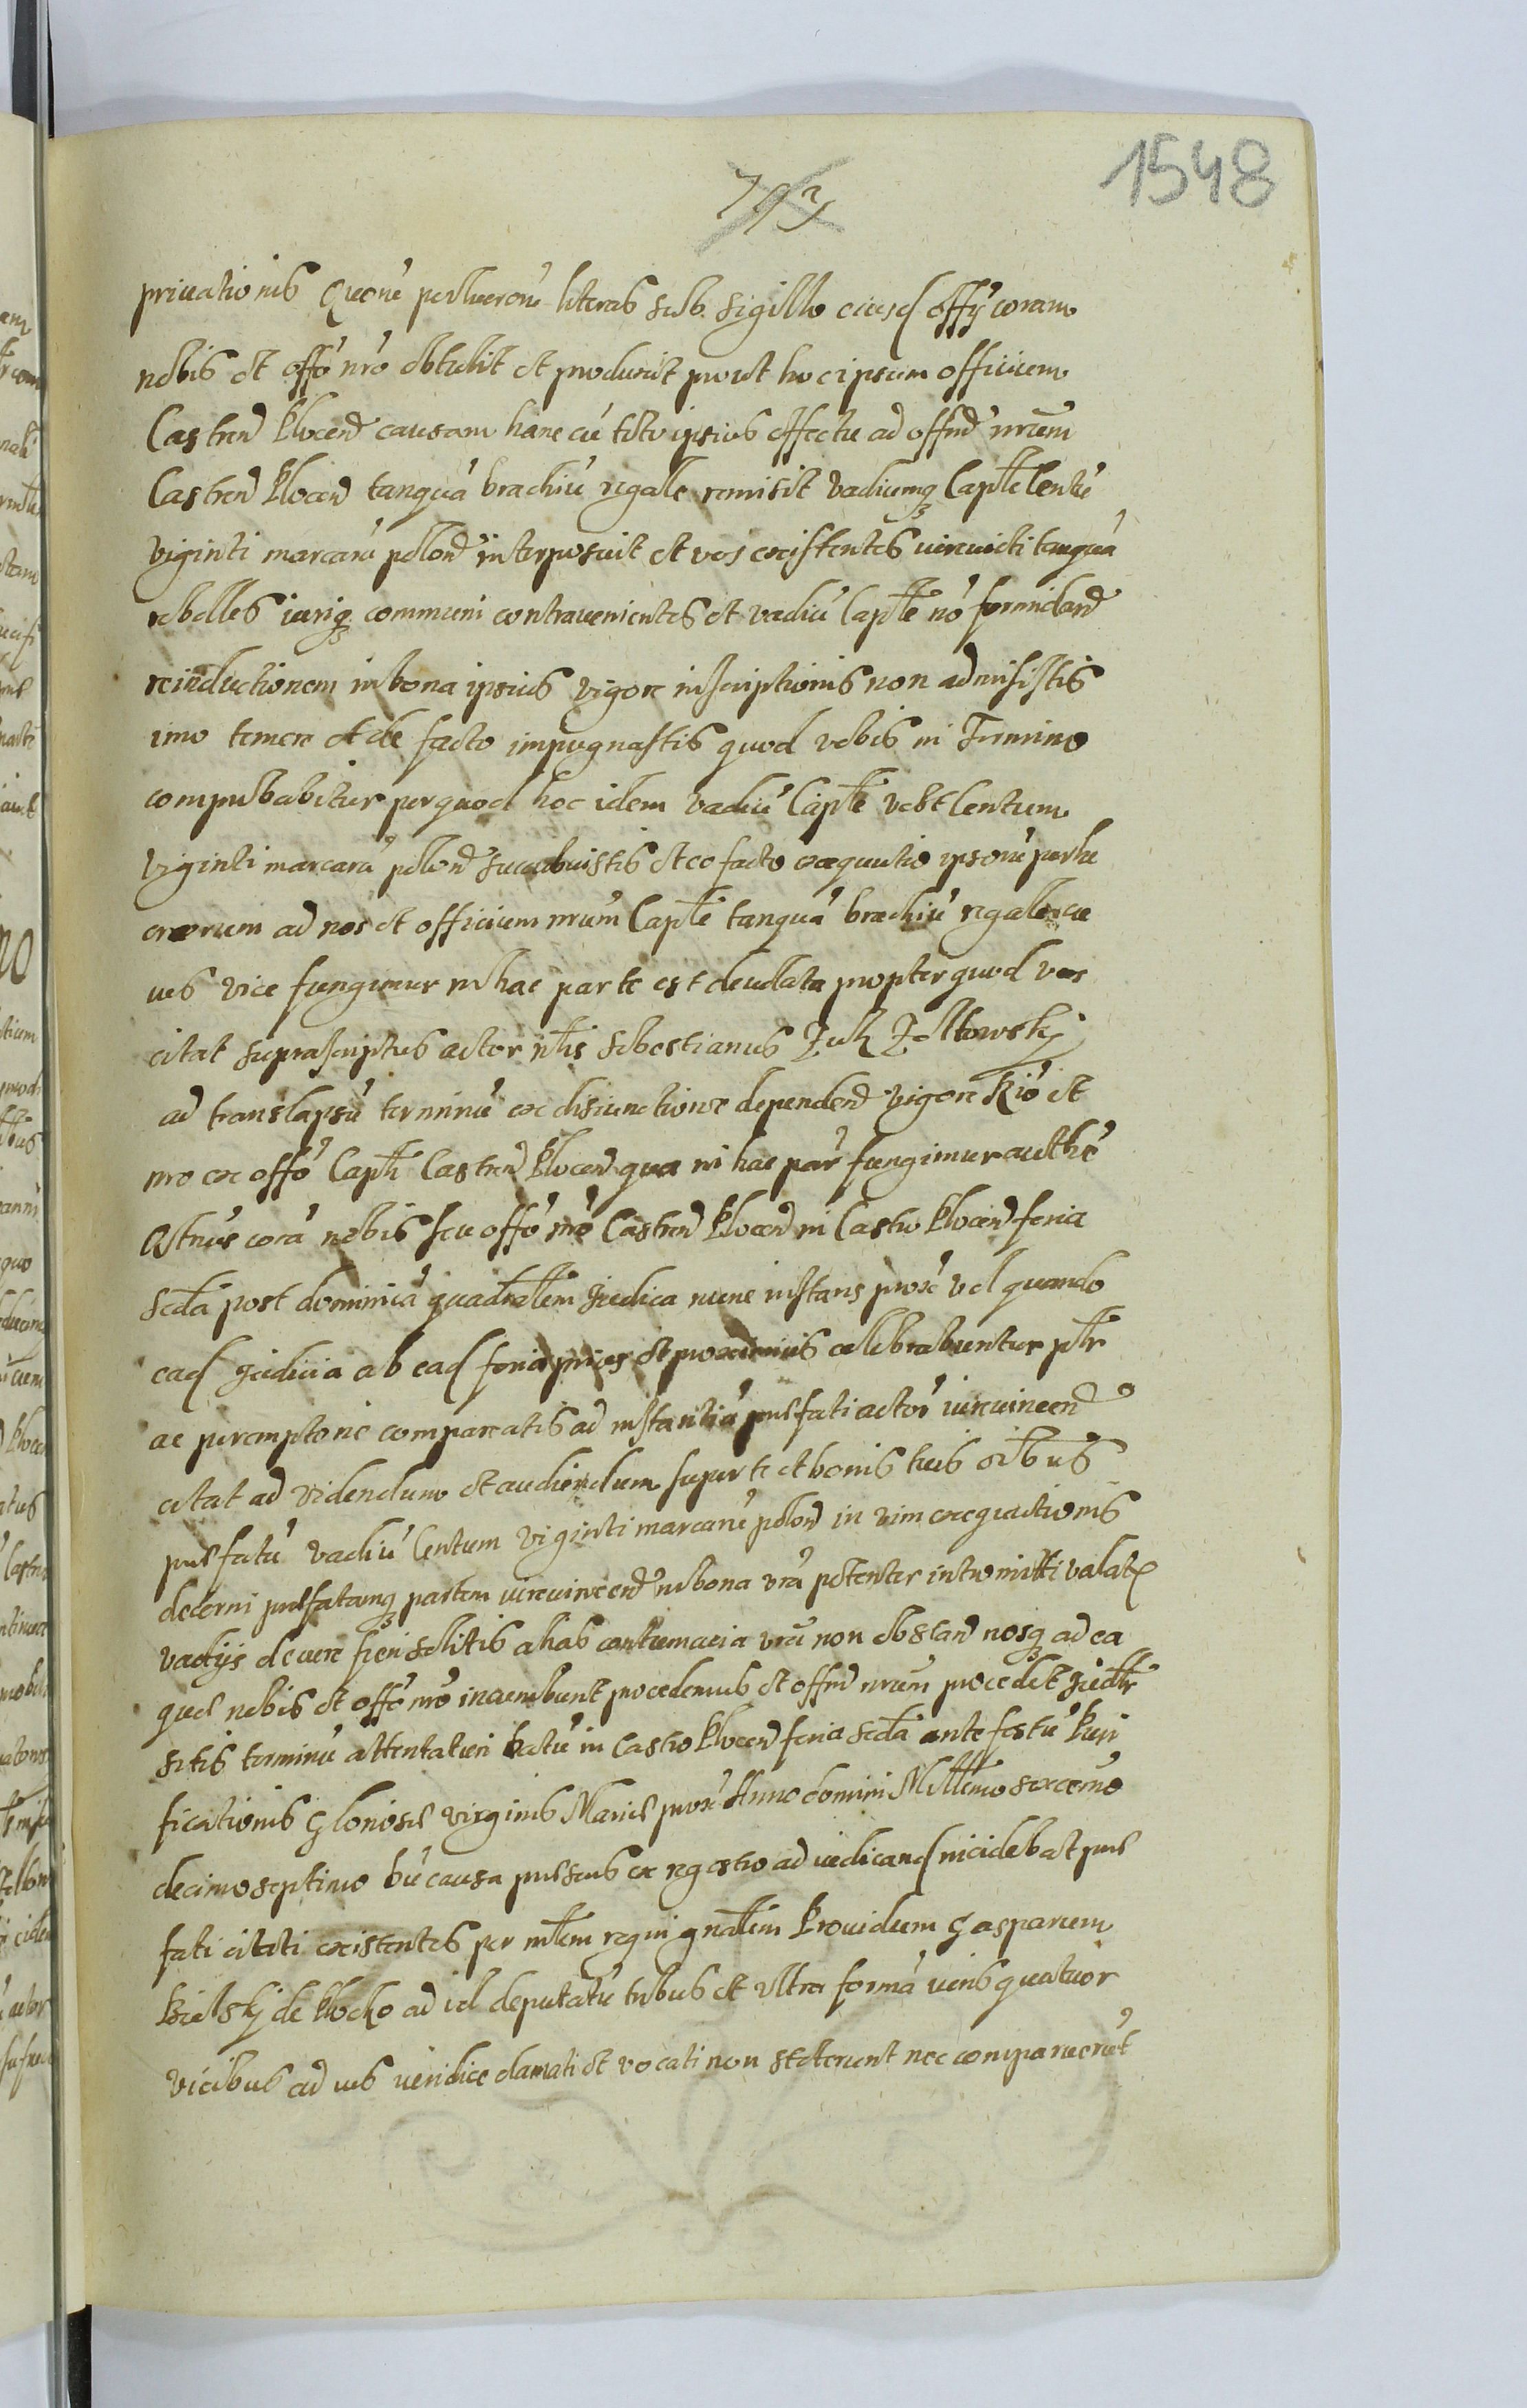 1548
priuationis Quorū perlucrorū literas sub sigillo eiusd offy coram
nobis et offō nrō obtulit et produxit prout hoc ipsum officium
Castren Plocen causam hanc cū toto ipsius effectu ad offm nrūm
Castren Plocen tanquā brachiū regale remisit vadiumq Captle Centū
viginti marcarū polon interposuit et vos existentes iurevicti tanquā
rebelles iuriq communi contravenientes et vadiū Captle nō formidand
reinductionem in bona ipsius vigore inscriptionis non admisistis
imo temere et de facto impugnastis quod vobis in Termino
comprobabitur per quod hoc idem vadiū Captle Centum
viginti marcarū polon succubuistis et eo facto exequutio ipsorū perlu
crorum ad nos et officium nrūm Captle tanquā brachiū regale cu
ius vice fungimur in hac parte est deuoluta propter quod vos
citat suprascriptus actor nlis Sebestianus Zoltowsky
ad translapsū terminū ex disiunctione dependen vigore Rio et
nro ex offō Capti Castren Plocen qua in hac par fungimur authē
Qtnūs corā nobis seu offō nrō Castren Plocen in Castro Plocen feria
scda post dominicā quadrālem Judica nunc instans prox vel quando
ead judicia ab ead feria prius et proximius celebrabuntur ptr
ac peremptorie compareatis ad instantiā prefati actor iurevincend
citat ad videndum et audiendum super te et bonis tuis oibus
prefatū vadiū Centum viginti marcarū polon in vim exequutionis
decerni prefatamq partem iurevincend in bona vrā potenter intromitti valat
vadijs de iure fieri solitis alias contumacia vrā non obstan nosq ad ea
que nobis et offō nrō incumbunt procedemus et offm nrūm procedet Judtr
sitis terminū attentaturi Datū in Castro Plocen feria scda ante festū Puri
ficationis Gloriose virginis Marie prox Anno domini Millmo sexcenmo
decimo septimo Dū causa presens ex regestro ad iudicand incidebat pre
fati citati existentes per mlem regni gnālem Providum Gasparum
Bielsky de Plocko ad id deputatū tribus et ultra formā iuris quatuor
vicibus ad ius iuridice clamati et vocati non steterunt nec comparuerūt